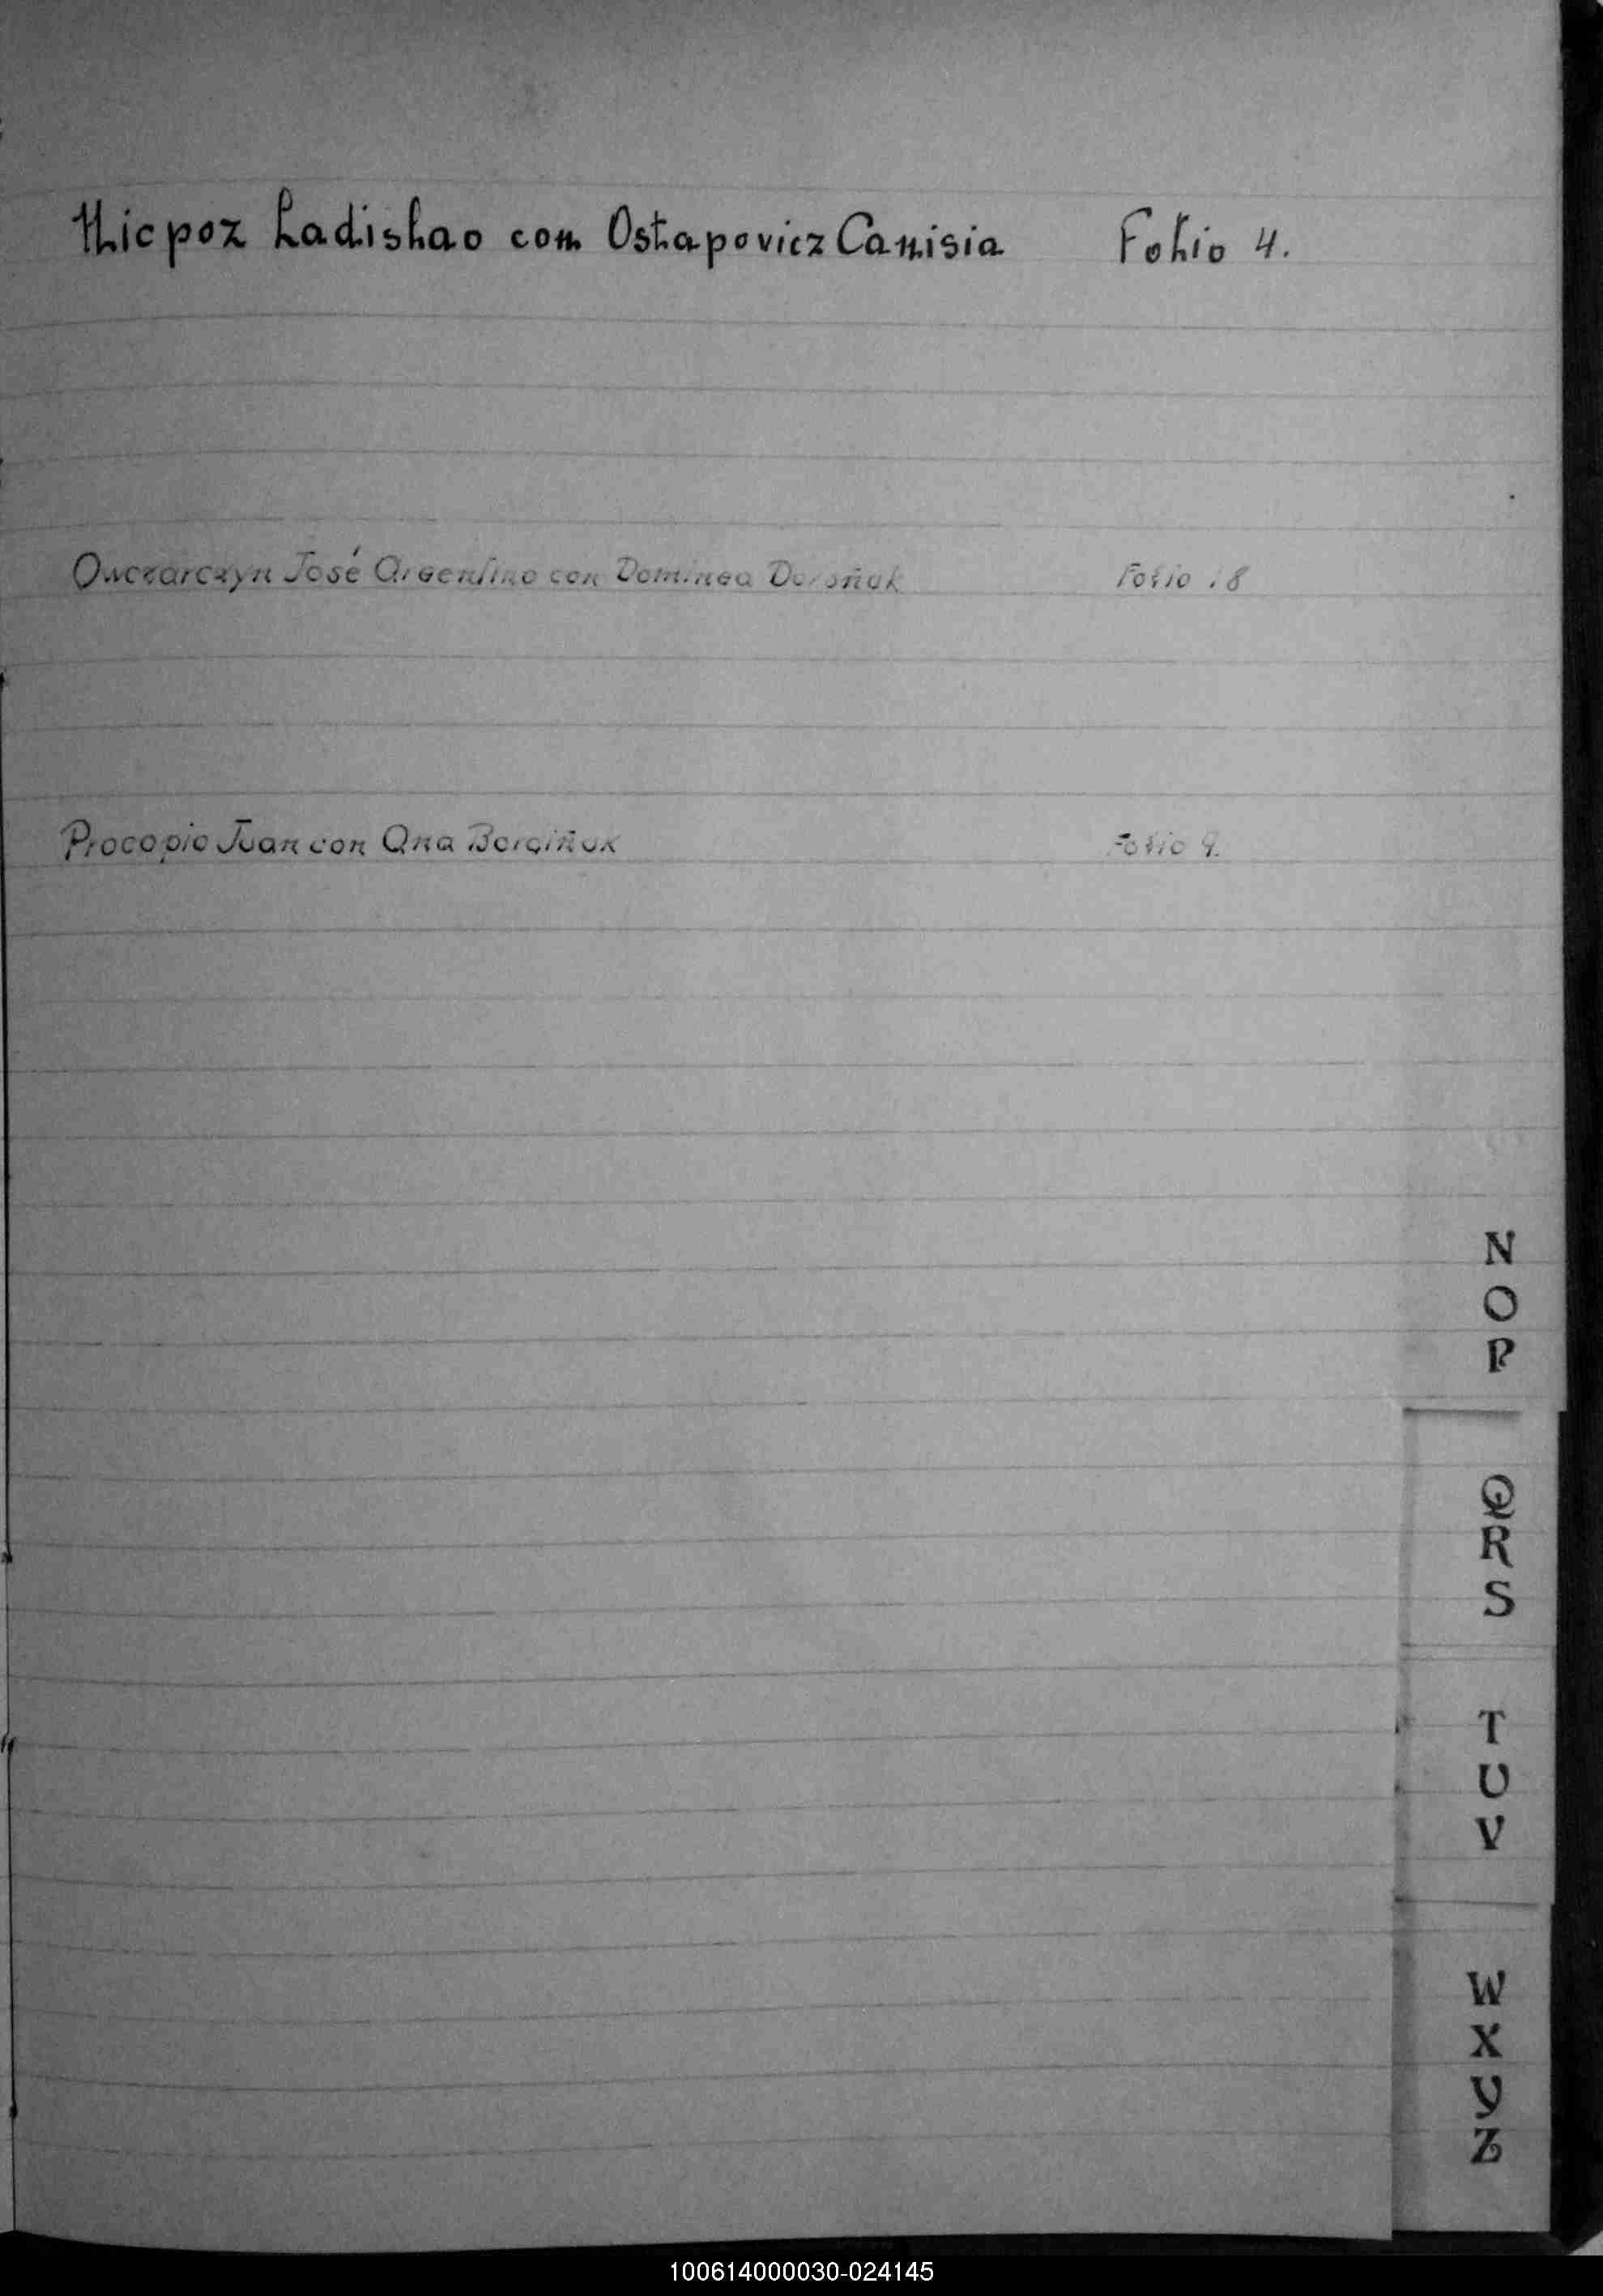 Nicpoz Ladislao con Ostapovicz Canisia Folio 4.
Owczarczyn José Argentino con Dominga Doroñuk Folio 18
Procopio Juan con Ana Borqiñuk Folio 9.
N
O
P
Q
R
S
T
U
V
W
X
Y
Z
100614000030-024145